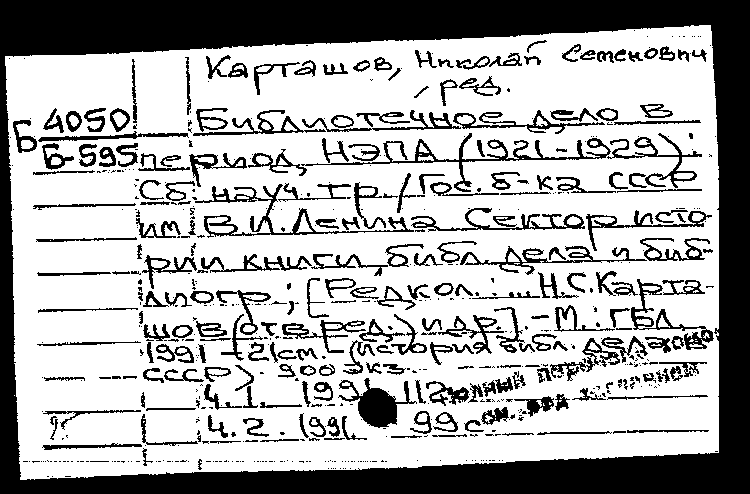 Карташов, Николай Семенович
, ред.
Б 4050
Б-595
Библиотечное дело в
период НЭПА (1921-1929):
Сб. науч. тр. / Гос. б-ка СССР
им. В.И. Ленина Сектор исто-
рии книги, библ. дела и биб-
лиогр.; [Редкол.: ... Н.С. Карта-
шов (отв. ред.) и др.]. - М.: ГБЛ,
1991 - 21 см. - (История библ. дела в
СССР). 900 экз.
Ч. 1. 1991. 112
полный перечень
Ч. 2. 1991. 99 с
см. под заглавием